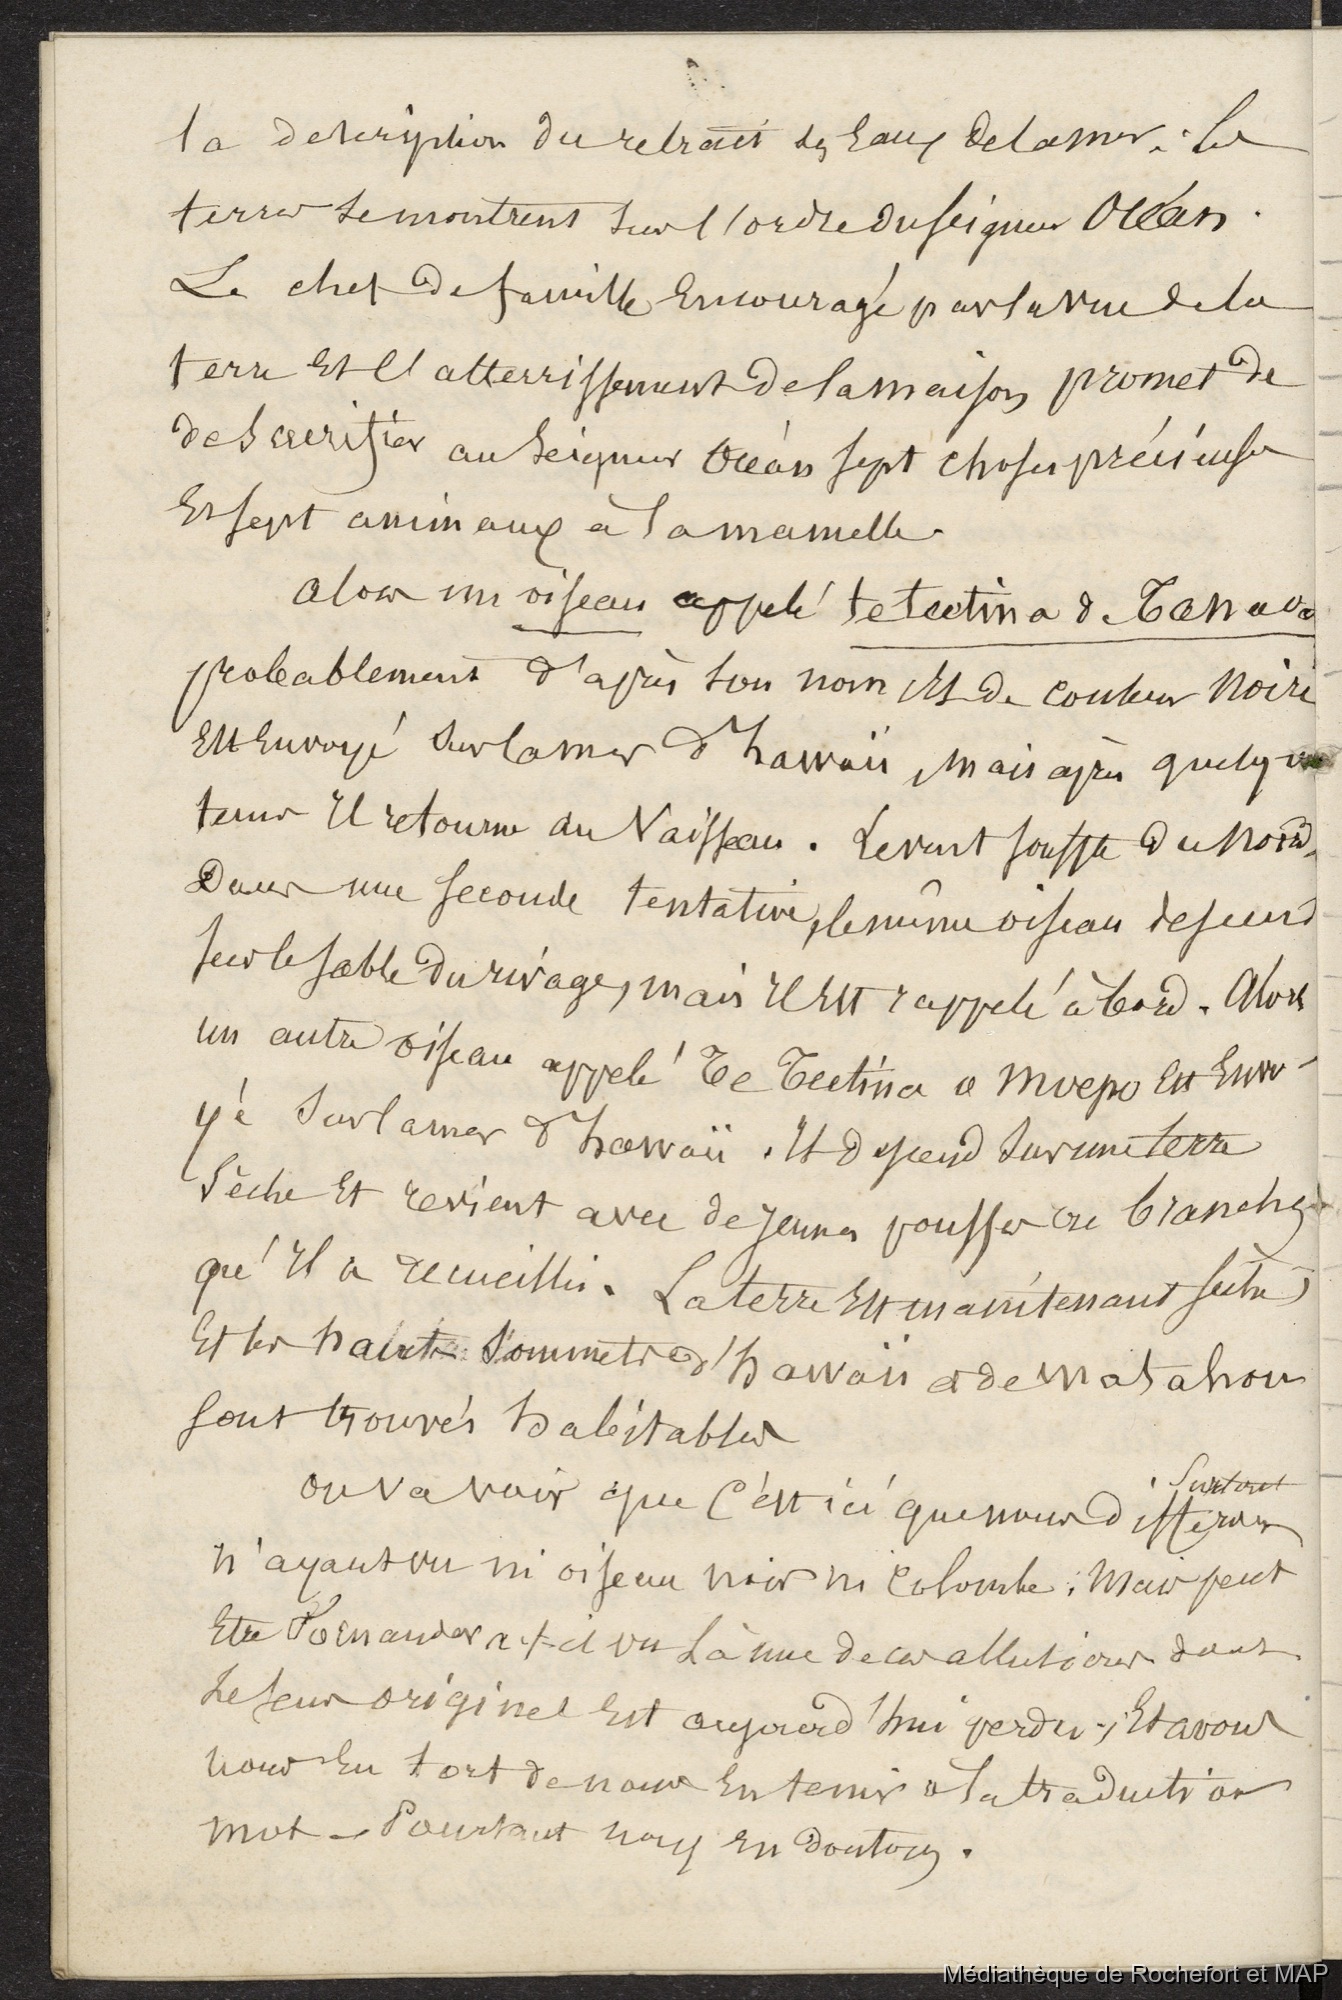 la description du retrait des Eaux de la mer : les
terres se montrent sur l'ordre du seigneur Océan.
Le chef de famille Encouragé par la vue de la
terre Et l'atterrissement de la maison promet de
de Sacrifier au Seigneur Océan sept choses précieuses
Et sept animaux à la mamelle.
Alors un oiseau appelé te teetina o Tanaoa
probablement d'après son nom Et de couleur noire
Est Envoyé sur la mer d'hawaii, mais après quelque
tems Il retourne au Vaisseau. Le vent souffle du Nord.
Dans une seconde tentative, le même oiseau descend
sur le sable du rivage, mais Il Est rappelé à bord. Alors
un autre oiseau appelé Te Teetina o Moepo Est Envo-
yé sur la mer d'hawaii. Il descend sur une terre
Sèche Et revient avec de jeunes pousses ou branches
qu'Il a recueillis. La terre Est maintenant sèche,
Et les hauts Sommets d'hawaii et de Matahou
sont trouvés habitables
On va voir que c'est ici que nous différons
surtout
n'ayant vu ni oiseau noir ni colombe; Mais peut
Etre Fornander a-t-il vu là une de ces allusions dont
le sens originel Est aujourd'hui perdu; Et avons
nous Eu tort de nous En tenir à la traduction
mot - Pourtant nous En doutons.
Médiathèque de Rochefort et MAP